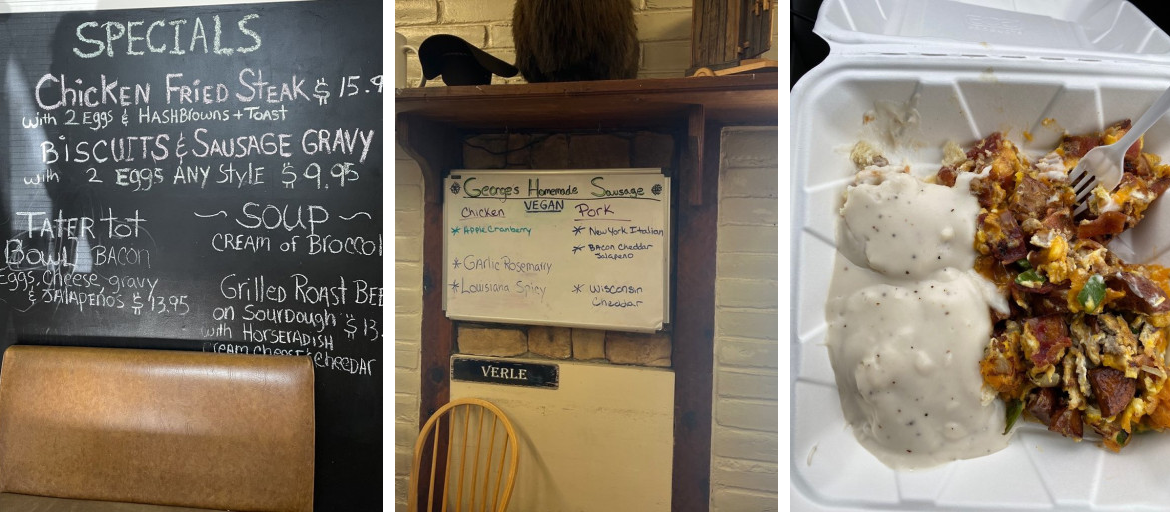 SPECIALS
Chicken Fried Steak $ 15.9
with 2 Eggs & HashBrowns + Toast
BiSCUITS & SAUSAGE GRAVY
with 2 Eggs ANY Style $ 9.95
TATER tot
Bowl BACON
Eggs, cheese, gravy
& JALAPEÑO'S $ 13.95
~ SOUP ~
CREAM of Broccol
Grilled Roast BEE
on SourDough $ 13.
with HORSERADISH
cream cheese & CheeDAR
George's Homemade Sausage
VEGAN
Chicken
* Apple Cranberry
* GArlic Rosemary
* Louisiana Spicy
Pork
* New York Italian
* BAcon Cheddar
Jalapeno
* Wisconsin
Cheddar
VERLE